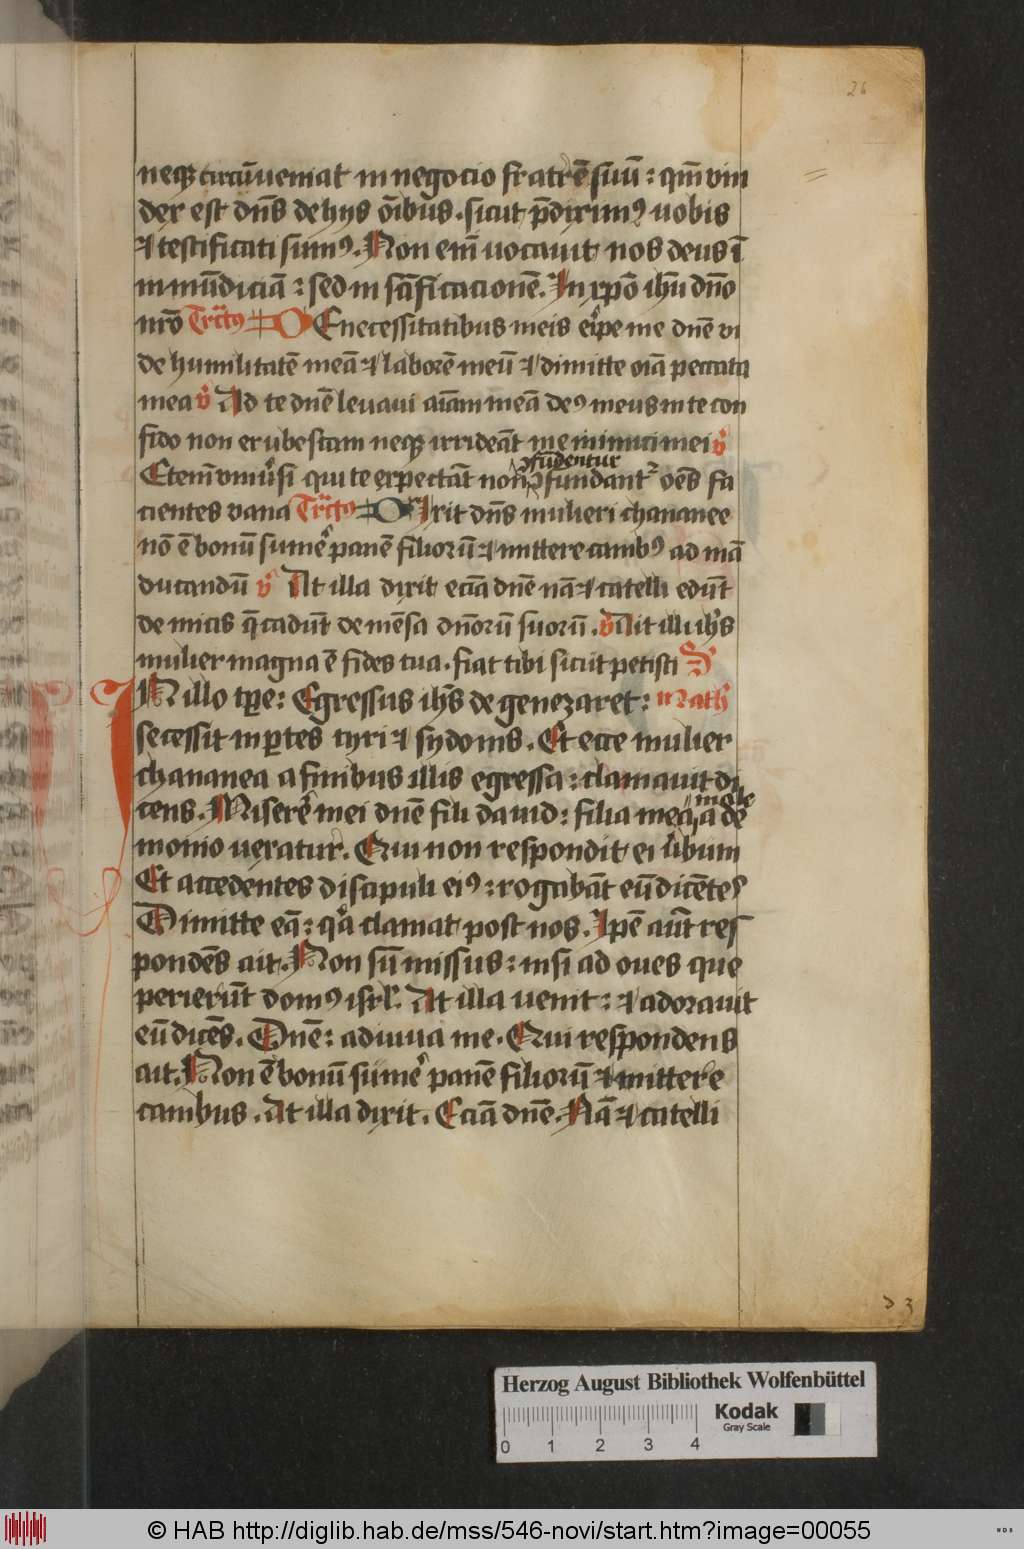 26
neqꝫ circūueniat in negocio fratrē suū : qm̄ vin
dex est dn̄s de hys oīb9 . sicut p̄diximꝰ uobis
⁊ testificati sumꝰ . Non em̄ uocauit nos deus ī
inmūdiciā : sed in scīficacionē . In xp̄o ihū dn̄o
nr̄o Trc̄tꝰ De necessitatibus meis eripe me dn̄e vi
de humilitatē meā ⁊ laborē meū ⁊ dimitte oīa peccata
mea v̊ Ad te dn̄e leuaui aīam meā deꝰ meus in te con
fido non erubescam neqꝫ irrideāt me inimici mei v̊
ꝯfūdentur
Etenī vniūsi qui te expectāt non ꝯfundant᷑ oēs fa
cientes vana Trc̄tꝰ Dixit dn̄s mulieri chananee
nō ē bonū sumē panē filiorū ⁊ mittere canibꝰ ad mā
ducandū v̊ At illa dixit eciā dn̄e nā ⁊ catelli edūt
de micis q̄ cadūt de mēsa dn̄orū suorū . v̊ Ait illi ihs̄
mulier magna ē fides tua . fiat tibi sicut petisti S
IN illo tp̄e : Egressus ihs̄ de genezaret : Math̓
secessit in ꝑtes tyri ⁊ sydonis . Et ecce mulier
chananea a finibus illis egressa : clamauit di
cens . Miserē mei dn̄e fili dauid : filia mea male a de
monio uexatur . Qui non respondit ei ūbum
Et accedentes discipuli eiꝰ : rogabāt eū dicētes
Dimitte eā : qͣa clamat post nos . Ip̄e aūt res
pondēs ait . Non sū missus : nisi ad oues que
perierūt domꝰ isrl̄ . At illa uenit : ⁊ adorauit
eū dicēs . Dn̄e : adiuua me . Qui respondens
ait . Non ē bonū sumē panē filiorū ⁊ mittere
canibus . At illa dixit . Eciā dn̄e . Nā ⁊ catelli
Herzog August Bibliothek Wolfenbüttel
Kodak
Gray Scale
0 1 2 3 4
© HAB http://diglib.hab.de/mss/546-novi/start.htm?image=00055
HAB